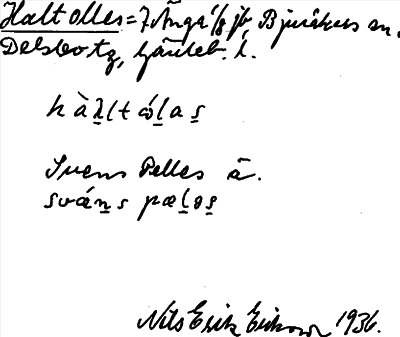 Haltolles = 7 Ånga 1/8 jb, Bjuråkers sn.
Delsbo tg, Gävleb. l.
hàltólas
Svens Pelles å.
sváns pæləs
Nils Erik Eriksson 1936.